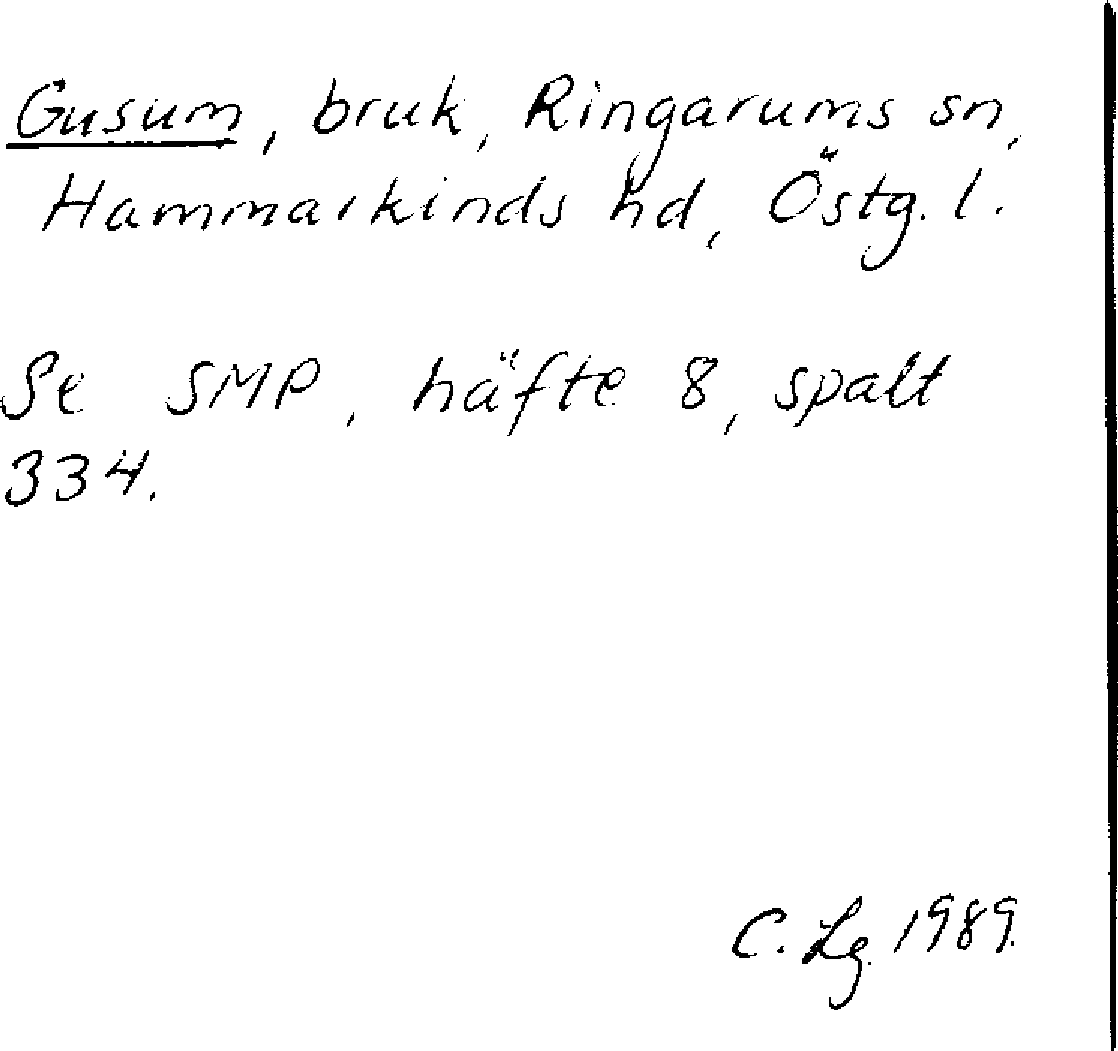 Gusum, bruk, Ringarums sn,
Hammarkinds hd, Östg. l.
Se SMP, häfte 8, spalt
334.
C. Lg. 1989.